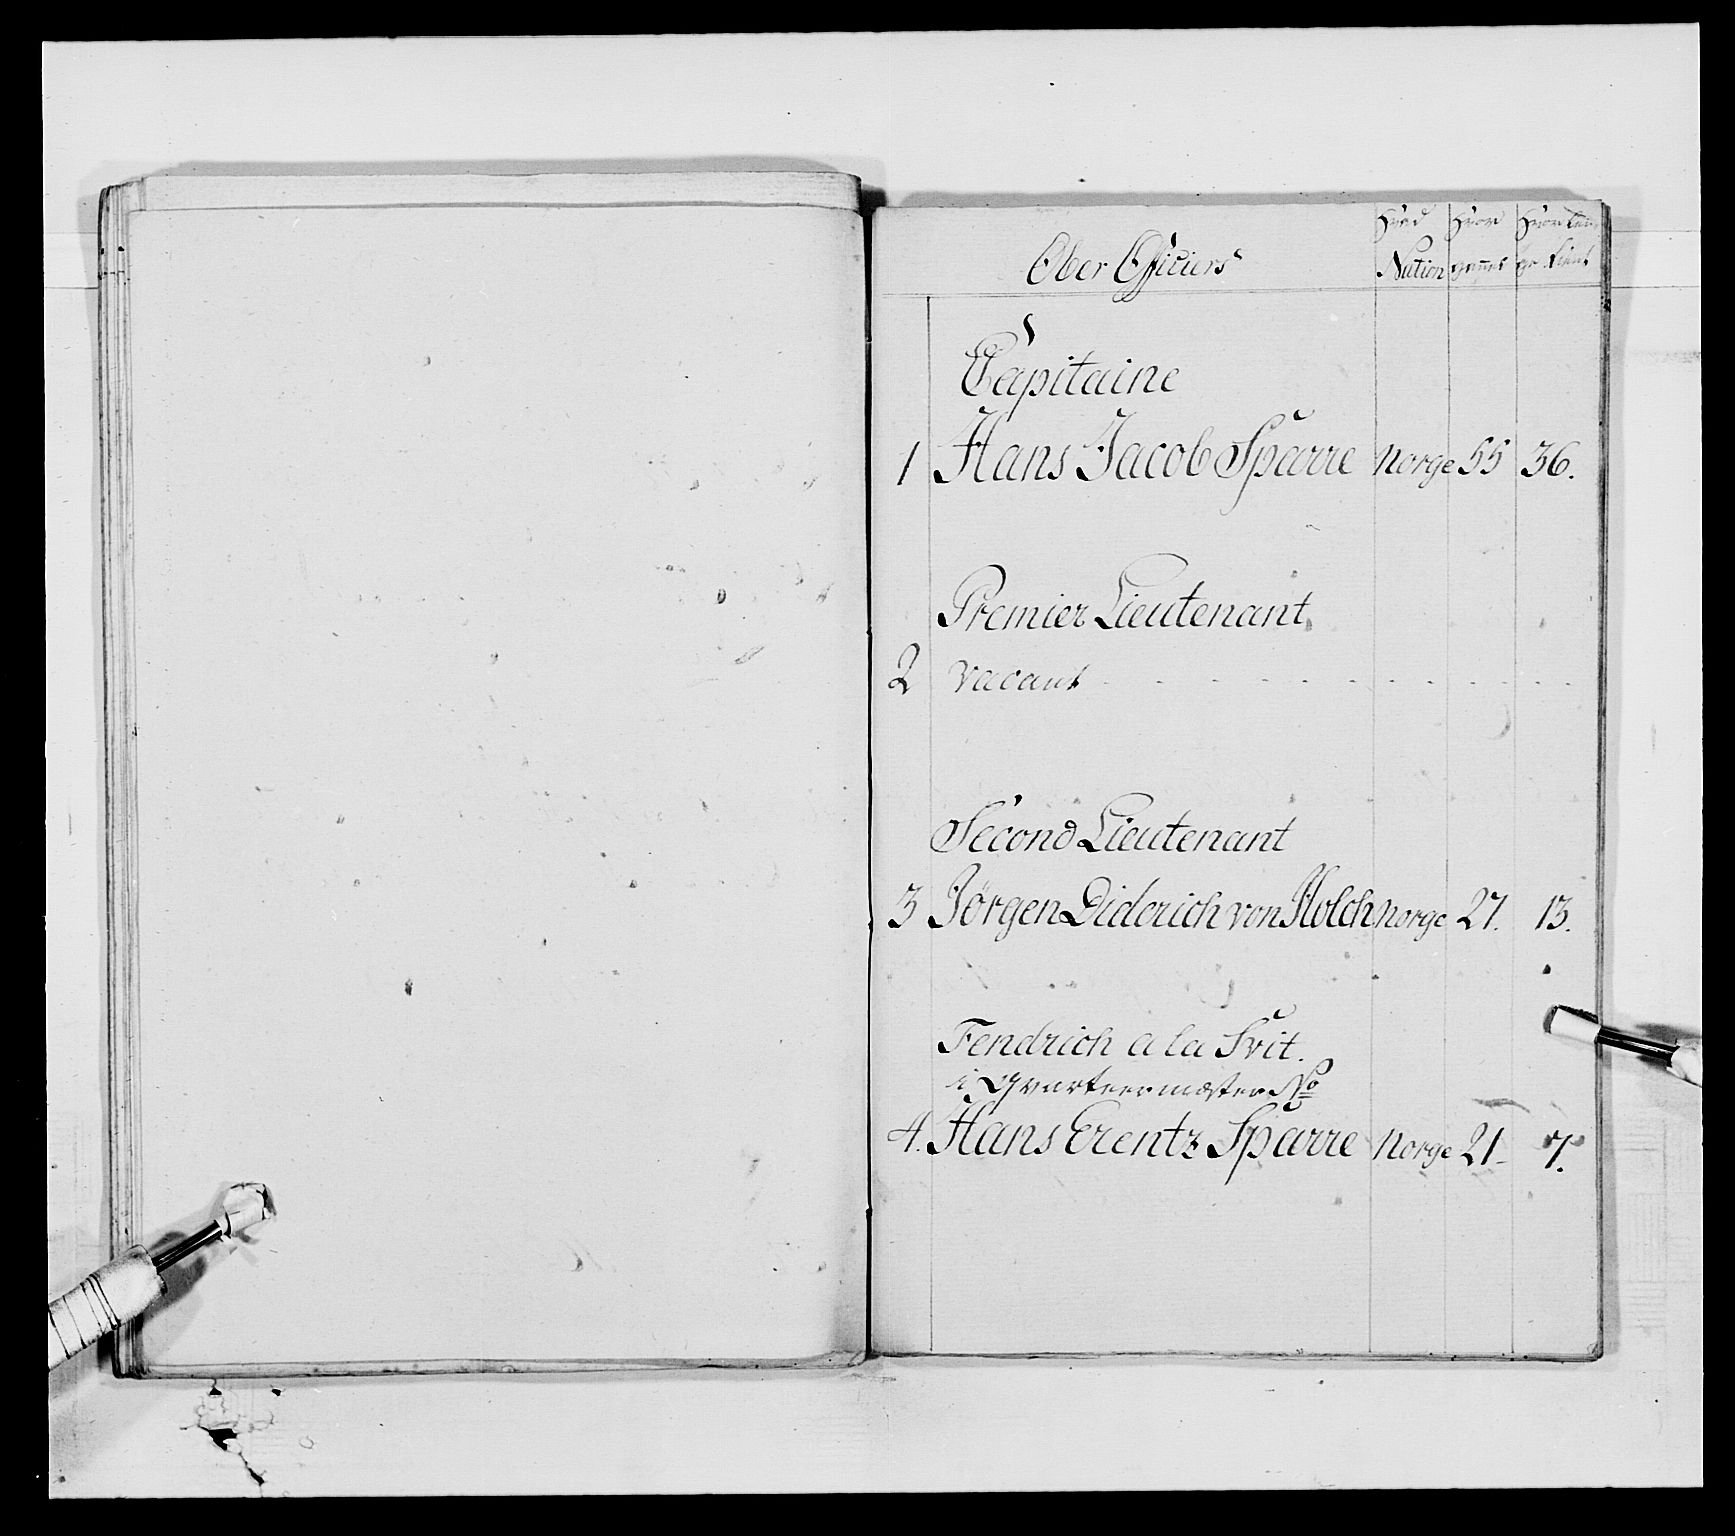 Ober Officiers
Hvad Nation
Hvor gam̄el
Hvor lan- ge tient
Capitaine
1 Hans Jacob Sparre Norge 55 36.
Premier Lieutenant
2 vacant - - - - - - - - - -
Second Lieutenant
3 Jörgen Diderich von Holch Norge 27. 13.
Fendrich a la Svit.
i Qvarteermæster No
4. Hans Erentz Sparre Norge 21 - 7.